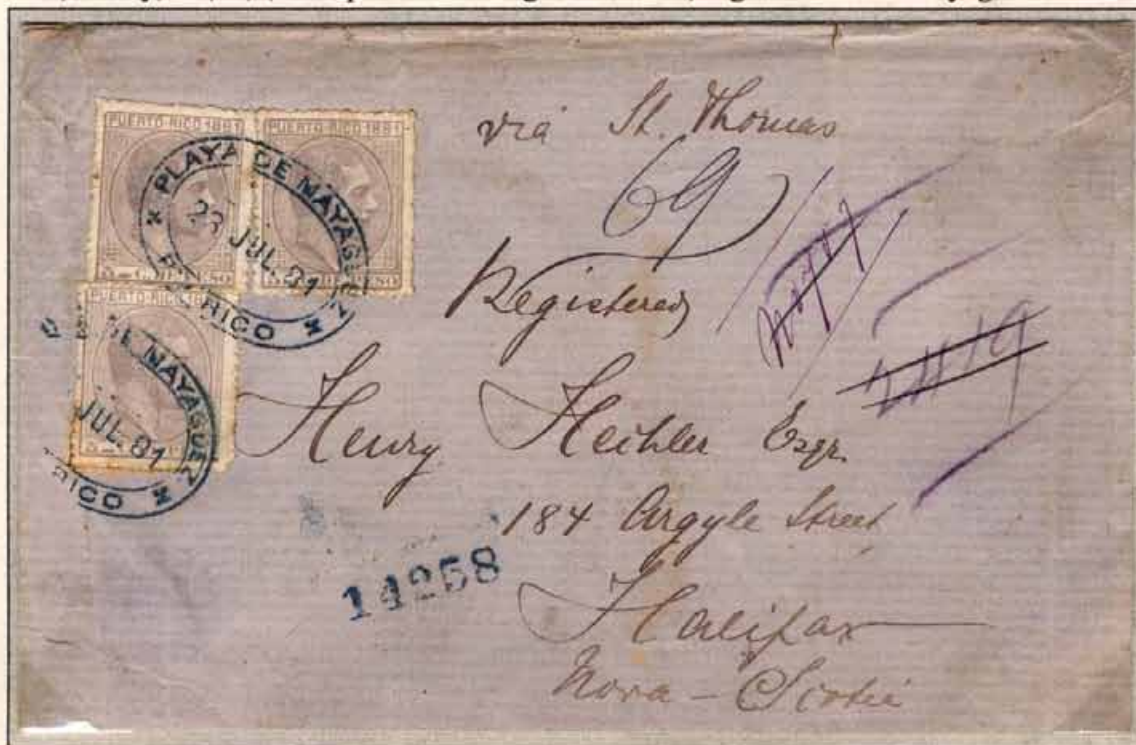 PUERTO-RICO 1881
PUERTO-RICO 1881
PUERTO-RICO 18
PLAYA DE MAYAGUEZ
23 JUL. 81
RICO
DE MAYAGUEZ
JUL. 81
RICO
via St. Thomas
69
Registered
Henry Hechler Esqr.
184 Argyle Street
14258
Halifax
Nova - Scotia